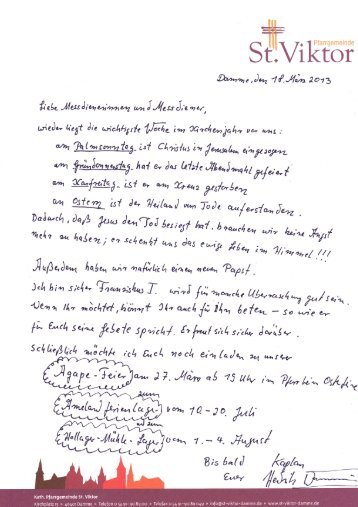 Pfarrgemeinde
St. Viktor
Damme, den 18. März 2013
Liebe Messdienerinnen und Messdiener,
wieder liegt die wichtigste Woche im Kirchenjahr vor uns:
am Palmsonntag ist Christus in Jerusalem eingezogen
am Gründonnerstag hat er das letzte Abendmahl gefeiert
am Karfreitag ist er am Kreuz gestorben
an Ostern ist der Heiland vom Tode auferstanden.
Dadurch, daß Jesus den Tod besiegt hat, brauchen wir keine Angst
mehr zu haben; er schenkt uns das ewige Leben im Himmel!!!
Außerdem haben wir natürlich einen neuen Papst.
Ich bin sicher Franziskus I. wird für manche Überraschung gut sein.
Wenn Ihr möchtet, könnt Ihr auch für Ihn beten – so wie er
für Euch seine Gebete spricht. Er freut sich sicher darüber.
Schließlich möchte ich Euch noch einladen zu unserer
Agape-Feier am 27. März ab 19 Uhr im Pfarrheim
zum
Ameland Ferienlager vom 10.-20. Juli
zum
Hollager-Mühle-Lager vom 1.-4. August
Bis bald Kaplan
Euer Heinrich
Kath. Pfarrgemeinde St. Viktor
Kirchplatz 49401 Damme • Telefon • info@st-viktor-damme.de • www.st-viktor-damme.de